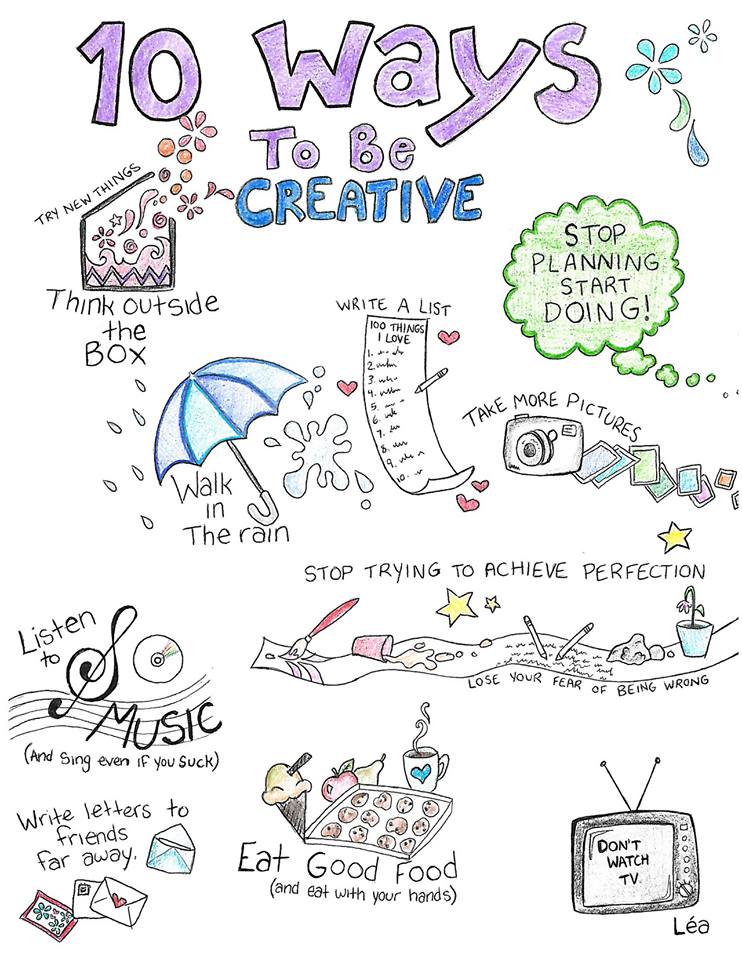 10 Ways
To Be
CREATIVE
TRY NEW THINGS
Think outside
the
BOX
STOP
PLANNING
START
DOING!
WRITE A LIST
100 THINGS
I LOVE
1.
2.
3.
4.
5.
6.
7.
8.
9.
10.
TAKE MORE PICTURES
Walk
in
The rain
STOP TRYING TO ACHIEVE PERFECTION
LOSE YOUR FEAR OF BEING WRONG
Listen
to
MUSIC
(And Sing even if you suck)
Write letters to
friends
far away.
Eat Good Food
(and eat with your hands)
DON'T
WATCH
TV
Léa